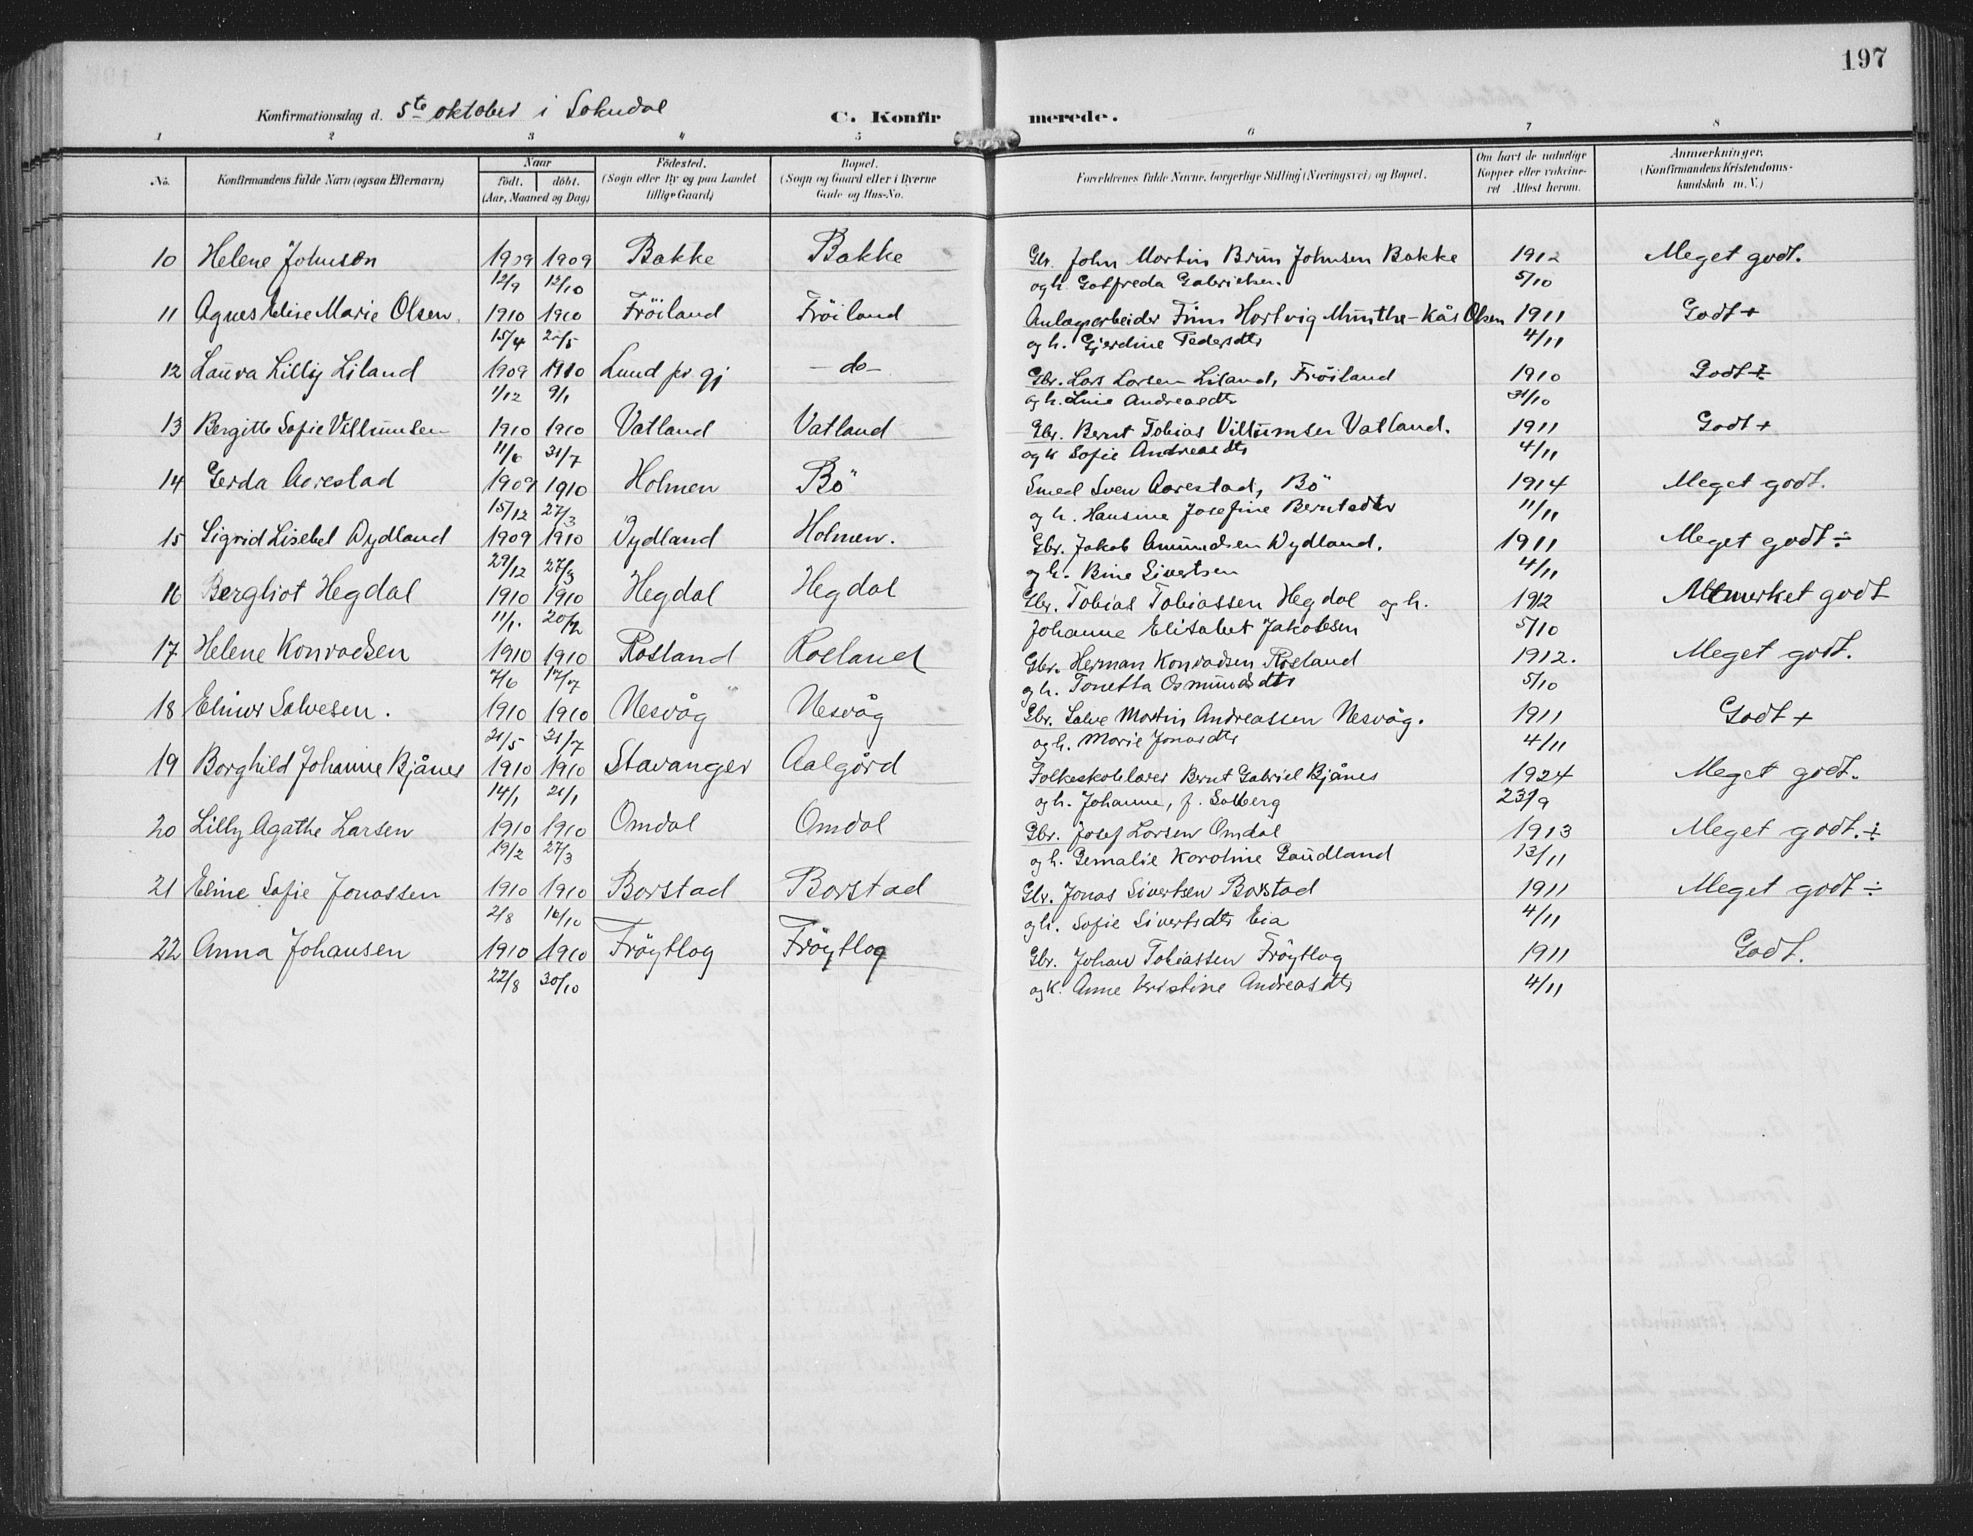 197
Konfirmationsdag d. 5te oktober i Sokndal C. Konfirmerede.
1 2 3 4 5 6 7 8
No. Konfirmandens fulde Navn (ogsaa Efternavn) Naar født. døbt. (Aar, Maaned og Dag) Fødested. (Sogn eller By og paa Landet tillige Gaard) Bopæl. (Sogn og Gaard eller i Byerne Gade og Hus-No. Forældrenes fulde Navne, borgerlige Stilling (Næringsvei) og Bopæl. Om havt de naturlige Kopper eller vakcineret Attest herom. Anmærkninger. (Konfirmandens Kristendomskundskab m. V.)
10 Helene Johnsen 1909 1909 Bakke Bakke Gbr. John Martin Brun Johnsen Bakke 1912 Meget godt.
12/9 12/10 og h. Gotfreda Gabrielsen. 5/10
11 Agnes Elise Marie Olsen. 1910 1910 Fröiland Fröiland Anlagsarbeider Finn Hartvig Munthe-Kås Olsen 1911 Godt +
15/4 22/5 og h. Gjerdine Pedersdtr 4/11
12 Laura Lilly Liland 1909 1910 Lund pr gj - do - Gbr. Lars Larsen Liland, Fröiland 1910 Godt ÷
1/12 9/1 og h. Line Andreasdtr 31/10
13 Bergitte Sofie Villumsen 1910 1910 Vatland Vatland Gbr. Bernt Tobias Villumsen Vatland. 1911 Godt +
11/6 31/7 og k Sofie Andreasdtr 4/11
14 Gerda Aarestad 1909 1910 Holmen Bö Smed Sven Aarestad, Bö 1914 Meget godt.
15/12 27/3 og h. Hansine Josefine Berntsdtr 11/11
15 Sigrid Lisebet Dydland 1909 1910 Dydland Holmen. Gbr. Jakob Amundsen Dydland. 1911 Meget godt ÷
29/12 27/3 og h. Bine Sivertsen 4/11
16 Bergliot Hegdal 1910 1910 Hegdal Hegdal Gbr. Tobias Tobiassen Hegdal og h. 1912 Utmerket godt
11/1. 20/2 Johanne Elisabet Jakobsen 5/10
17 Helene Konradsen 1910 1910 Rosland Rosland Gbr. Herman Konradsen Rosland 1912. Meget godt.
7/6 17/7 og h. Tonetta Osmundsdtr 5/10
18 Elinor Salvesen. 1910 1910 Nesvåg Nesvåg Gbr. Salve Martin Andreassen Nesvåg. 1911 Godt +
21/5 31/7 og h. Marie Jonasdtr 4/11
19 Borghild Johanne Bjånes 1910 1910 Stavanger Aalgård Folkeskolelærer Bernt Gabriel Bjånes 1924 Meget godt.
14/1 21/1 og h. Johanne, f. Solberg 23/9
20 Lilly Agathe Larsen 1910 1910 Omdal Omdal Gbr. Josef Larsen Omdal 1913 Meget godt. ÷
19/2 27/3 og h. Gemalie Karoline Gaudland 13/11
21 Eline Sofie Jonassen 1910 1910 Barstad Barstad Gbr. Jonas Sivertsen Barstad 1911 Meget godt ÷
2/8 16/10 og h. Sofie Sivertsdtr Eia 4/11
22 Anna Johansen 1910 1910 Fröytlog Fröytlog Gbr. Johan Tobiassen Fröytlog 1911 Godt.
22/8 30/10 og k. Anne Kristine Andreasdtr 4/11